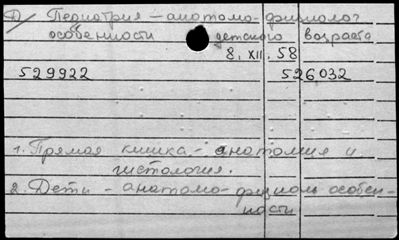 D/ Педиатрия – анатомо-физиолог
особенности детского возраста
8. XII. 58
529922 526032
1. Прямая кишка – анатомия и
гистология.
2. Дети – анатомо-физиол. особен-
ности